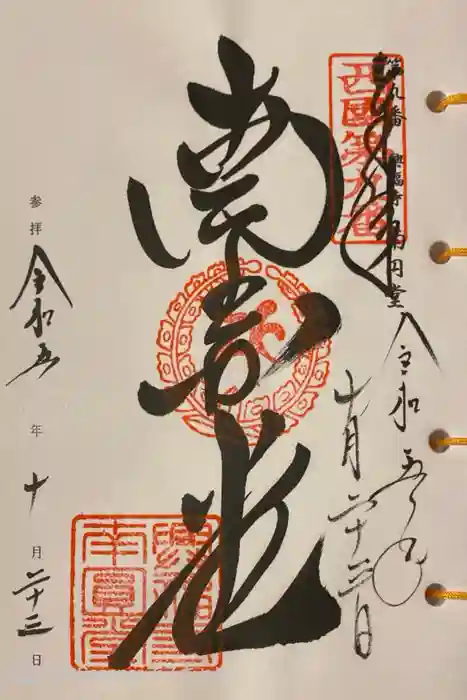 第九番 興福寺 南円堂
西國第九番
奉拝
令和五年
十月二十三日
南円堂
興福寺
南圓堂
参拝 令和五年十月二十三日